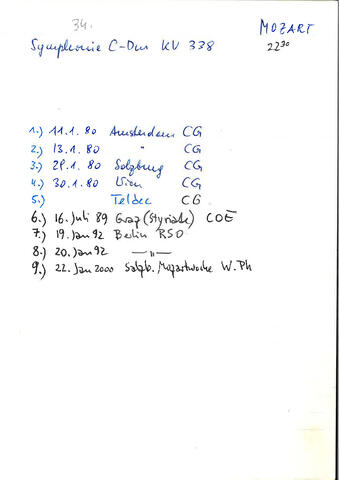 34.
MOZART
Symphonie C-Dur KV 338
22³⁰
1.) 11.1.80 Amsterdam CG
2.) 13.1.80 " CG
3.) 29.1.80 Salzburg CG
4.) 30.1.80 Wien CG
5.) Teldec CG
6.) 16. Juli 89 Graz (Styriate) COE
7.) 19. Jan 92 Berlin RSO
8.) 20. Jan 92 —"—
9.) 22. Jan 2000 Salzb. Mozartwoche W. Ph